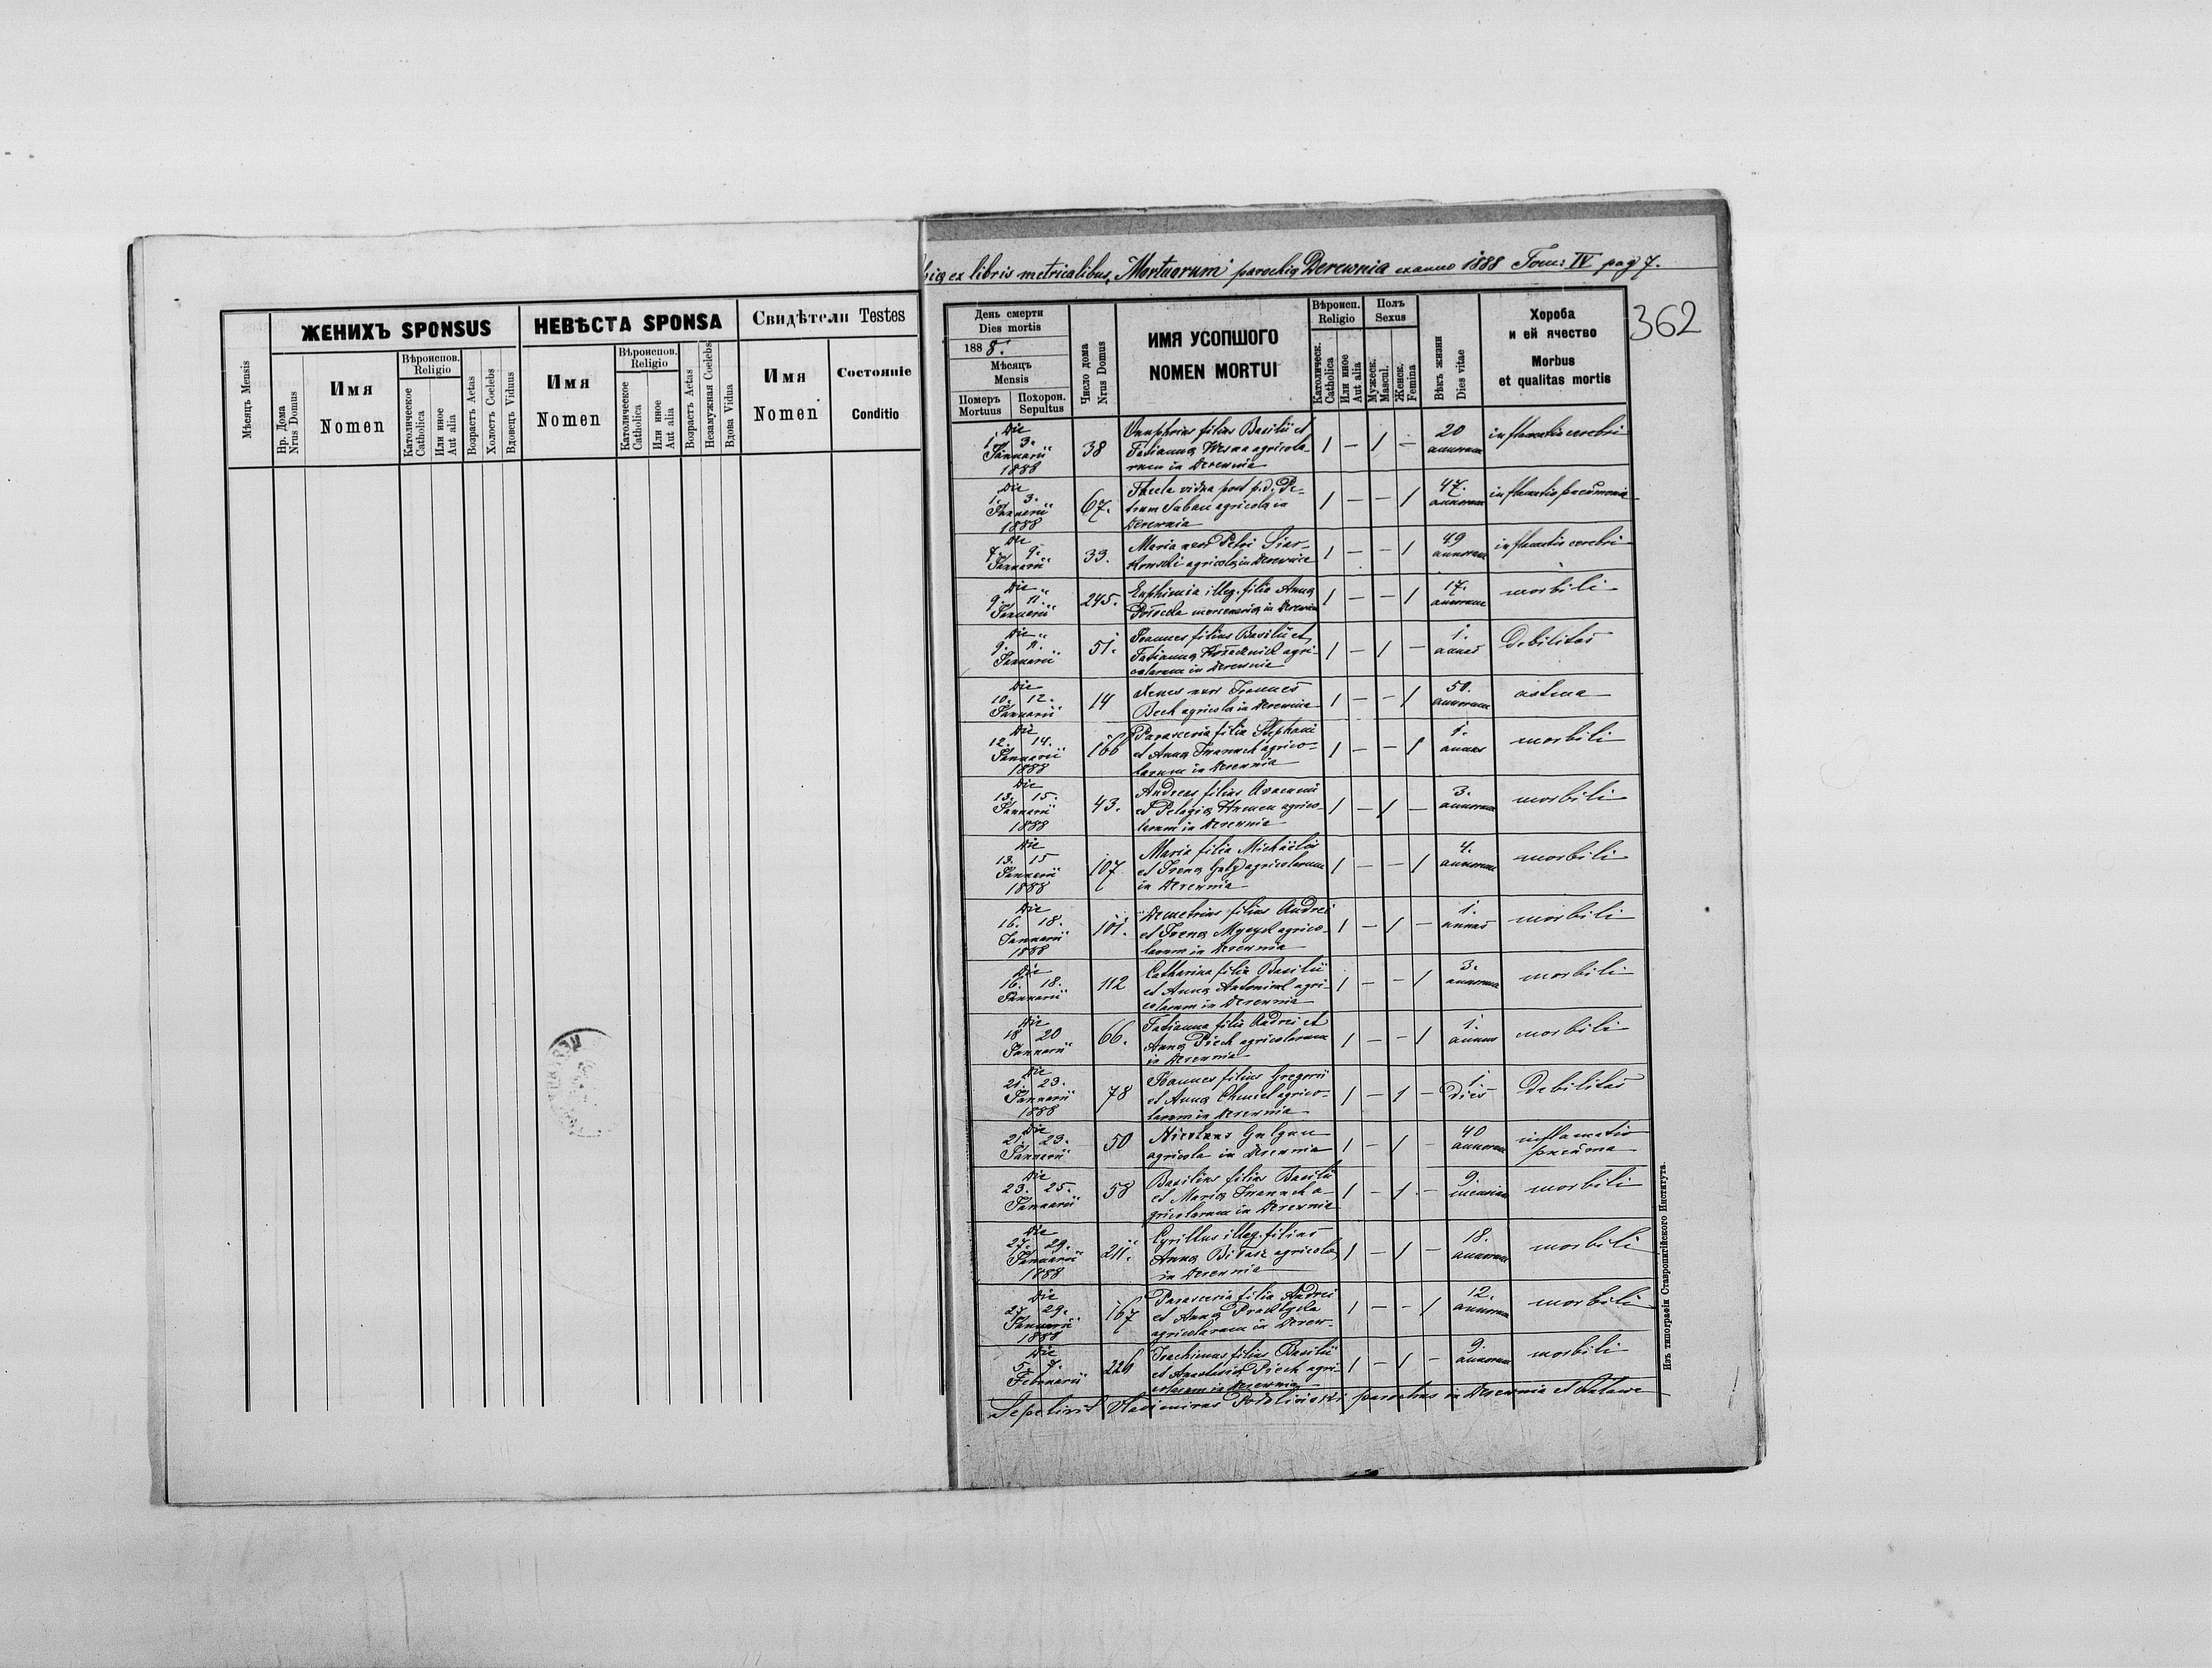 ЖЕНИХЪ SPONSUS
НЕВѢСТА SPONSA
Свидѣтели Testes
Мѣсяцъ Mensis
Нр. Дома
Nrus Domus
Имя
Nomen
Вѣроиспов.
Religio
Католическое
Catholica
Или иное
Aut alia
Возрастъ Aetas
Холостъ Coelebs
Вдовецъ Viduus
Имя
Nomen
Вѣроиспов.
Religio
Католическое
Catholica
Или иное
Aut alia
Возрастъ Aetas
Незамужная Coelebs
Вдова Vidua
Имя
Nomen
Состояніе
Conditio
ex libris metricalibus, Mortuorum parochię Derewnia ex anno 1888 Tom: IV pag 7.
362
День смерти
Dies mortis
1888.
Мѣсяцъ
Mensis
Померъ
Mortuus
Похорон.
Sepultus
Число дома
Nrus Domus
ИМЯ УСОПШОГО
NOMEN MORTUI
Вѣроисп.
Religio
Католическ.
Catholica
Или иное
Aut alia
Полъ
Sexus
Мужеск.
Mascul.
Женск.
Femina
Вѣкъ жизни
Dies vitae
Хороба
и ей ячество
Morbus
et qualitas mortis
Die
1. 3.
Januarii
1888
38
Onuphrius filius Basilii et
Tatiannę agricola-
rum in Derewnia
1 — 1 —
20
annorum
inflamatio cerebri
Die
1. 3.
Januarii
1888
67.
Thecla vidua post p.d. Pe-
trum agricola in
Derewnia
1 — — 1
47.
annorum
inflamatio pneumonia
Die
7. 9.
Januarii
33.
Maria uxor Petri
agricolę in Derewnia
1 — — 1
49
annorum
inflamatio cerebri
Die
9. 11.
Januarii
245.
Euphimia illeg. filia Annę
in Derewnia
1 — — 1
17.
annorum
morbili
Die
9. 11.
Januarii
51.
Joannes filius Basilii et
Tatiannę agri-
colarum in Derewnia
1 — 1 —
1.
annus
Debilitas
Die
10. 12.
Januarii
14
uxor Joannes
agricola in Derewnia
1 — — 1
50.
annorum
astma
Die
12. 14.
Januarii
1888
166
Parasceva filia Stephani
et Annę Iwanuch agrico-
larum in Derewnia
1 — — 1
1.
annus
morbili
Die
13. 15.
Januarii
1888
43.
Andreas filius
et Pelagię agrico-
larum in Derewnia
1 — 1 —
3.
annorum
morbili
Die
13. 15
Januarii
1888
107
Maria filia Michaëlis
et Irenę agricolarum
in Derewnia
1 — — 1
4.
annorum
morbili
Die
16. 18.
Januarii
1888
101.
Demetrius filius Andrei
et Irenę agrico-
larum in Derewnia
1 — 1 —
1.
annus
morbili
Die
16. 18.
Januarii
112
Catharina filia Basilii
et Annę agri-
colarum in Derewnia
1 — — 1
3.
annorum
morbili
Die
18 20
Januarii
66.
Tatianna filia Andrei et
Annę Piech agricolarum
in Derewnia
1 — — 1
1.
annus
morbili
Die
21. 23.
Januarii
1888
78
Joannes filius Gregorii
et Annę Chmiel agrico-
larum in Derewnia
1 — 1 —
1
dies
Debilitas
Die
21. 23.
Januarii
50
Nicolaus
agricola in Derewnia
1 — 1
40
annorum
inflamatio
pneumona
Die
23. 25.
Januarii
58
Basilius filius Basilii
et Marię Iwanuch a-
gricolarum in Derewnia
1 — 1 —
9.
mensium
morbili
Die
27. 29.
Januarii
1888
211.
Cyrillus illeg. filius
Annę agricolę
in Derewnia
1 — 1 —
18.
annorum
morbili
Die
27. 29.
Januarii
1888
167
Parasceva filia Andrei
et Annę
agricolarum in Derew-
1 — — 1
12.
annorum
morbili
Die
5. 7.
Februarii
226
Joachimus filius Basilii
et Anastasię Piech agri-
colarum in Derewnia
1 — 1 —
9.
annorum
morbili
Sepelivit Vladimirus parochus in Derewnia et
Изъ типографіи Ставропигійского Института.